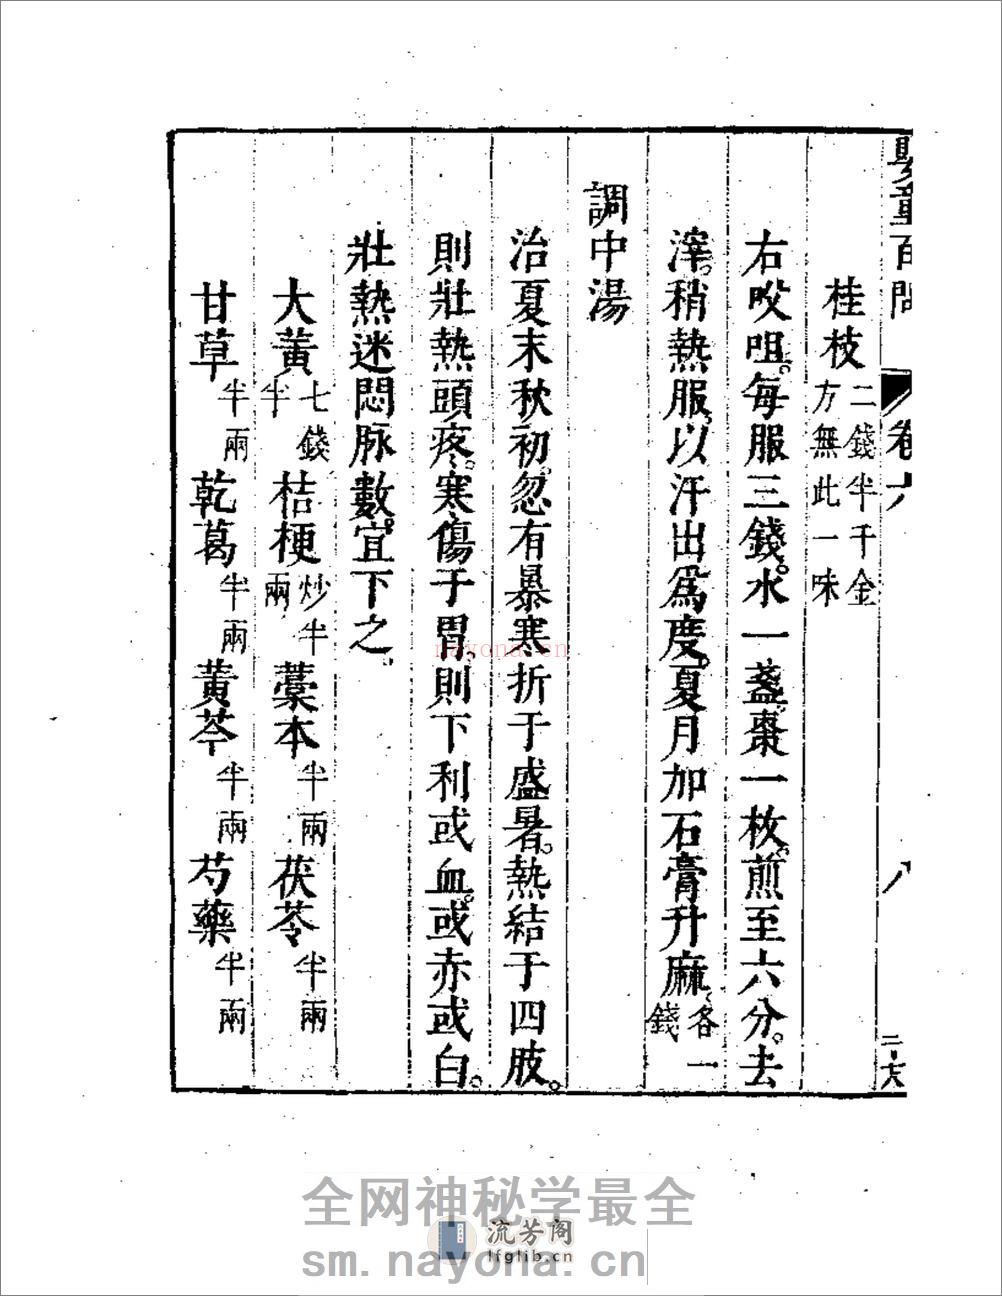 嬰童百問 卷六 八 二六
桂枝二錢半千金方無此一味
右㕮咀。每服三錢。水一盞。棗一枚。煎至六分。去
滓。稍熱服。以汗出爲度。夏月加石膏升麻。各一錢
調中湯
治夏末秋初。忽有暴寒折于盛暑。熱結于四肢。
則壯熱頭疼。寒傷于胃。則下利或血。或赤或白。
壯熱迷悶脉數。宜下之。
大黃七錢半 桔梗炒半兩 藁本半兩 茯苓半兩
甘草半兩 乾葛半兩 黃芩半兩 芍藥半兩
nayona.cn
全网神秘学最全
流芳阁
lfglib.cn
sm.nayona.cn